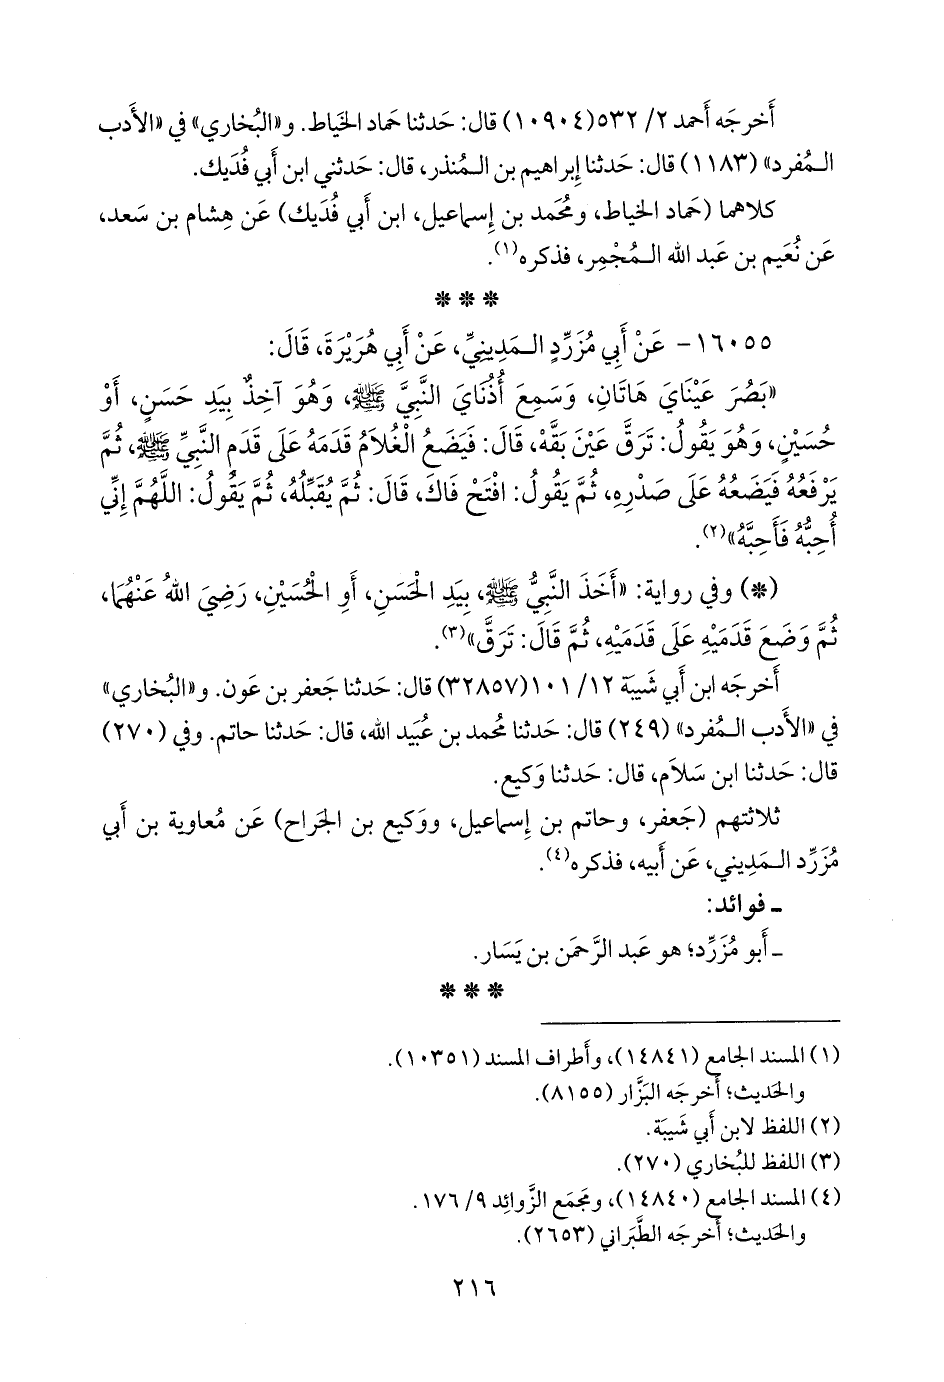 أَخرجَه أَحمد ٢/ ٥٣٢(١٠٩٠٤) قال: حَدثنا حَماد الخَياط. و«البُخاري» في «الأَدب
المُفرد» (١١٨٣) قال: حَدثنا إِبراهيم بن المُنذر، قال: حَدثني ابن أَبي فُدَيك.
كلاهما (حَماد الخياط، ومُحَمد بن إِسماعيل، ابن أَبي فُدَيك) عَن هِشام بن سَعد،
عَن نُعَيم بن عَبد الله المُجْمِر، فذكره(١).
* * *
١٦٠٥٥- عَنْ أَبِي مُزَرِّدٍ المَدِينِيِّ، عَنْ أَبِي هُرَيْرَةَ، قَالَ:
«بَصُرَ عَيْنَايَ هَاتَانِ، وَسَمِعَ أُذُنَايَ النَّبِيَّ ﷺ، وَهُوَ آخِذٌ بِيَدِ حَسَنٍ، أَوْ
حُسَيْنٍ، وَهُوَ يَقُولُ: تَرَقَّ عَيْنَ بَقَّهْ، قَالَ: فَيَضَعُ الْغُلاَمُ قَدَمَهُ عَلَى قَدَمِ النَّبِيِّ ﷺ، ثُمَّ
يَرْفَعُهُ فَيَضَعُهُ عَلَى صَدْرِهِ، ثُمَّ يَقُولُ: افْتَحْ فَاكَ، قَالَ: ثُمَّ يُقَبِّلُهُ، ثُمَّ يَقُولُ: اللَّهُمَّ إِنِّي
أُحِبُّهُ فَأَحِبَّهُ»(٢).
(*) وفي رواية: «أَخَذَ النَّبِيُّ ﷺ، بِيَدِ الْحَسَنِ، أَوِ الْحُسَيْنِ، رَضِيَ اللهُ عَنْهُمَا،
ثُمَّ وَضَعَ قَدَمَيْهِ عَلَى قَدَمَيْهِ، ثُمَّ قَالَ: تَرَقَّ»(٣).
أَخرجَه ابن أَبي شَيبة ١٢/ ١٠١(٣٢٨٥٧) قال: حَدثنا جَعفر بن عَون. و«البُخاري»
في «الأَدب المُفرد» (٢٤٩) قال: حَدثنا مُحمد بن عُبَيد الله، قال: حَدثنا حاتم. وفي (٢٧٠)
قال: حَدثنا ابن سَلاَم، قال: حَدثنا وَكيع.
ثلاثتهم (جَعفر، وحاتم بن إِسماعيل، ووَكيع بن الجَراح) عَن مُعاوية بن أَبي
مُزَرِّد المَدِيني، عَن أَبيه، فذكره(٤).
ـ فوائد:
ـ أَبو مُزَرِّد؛ هو عَبد الرَّحمَن بن يَسَار.
* * *
(١) المسند الجامع (١٤٨٤١)، وأَطراف المسند (١٠٣٥١).
والحَديث؛ أَخرجَه البَزَّار (٨١٥٥).
(٢) اللفظ لابن أَبي شَيبَة.
(٣) اللفظ للبُخاري (٢٧٠).
(٤) المسند الجامع (١٤٨٤٠)، ومَجمَع الزَّوائِد ٩/ ١٧٦.
والحَديث؛ أَخرجَه الطَّبَراني (٢٦٥٣).
٢١٦